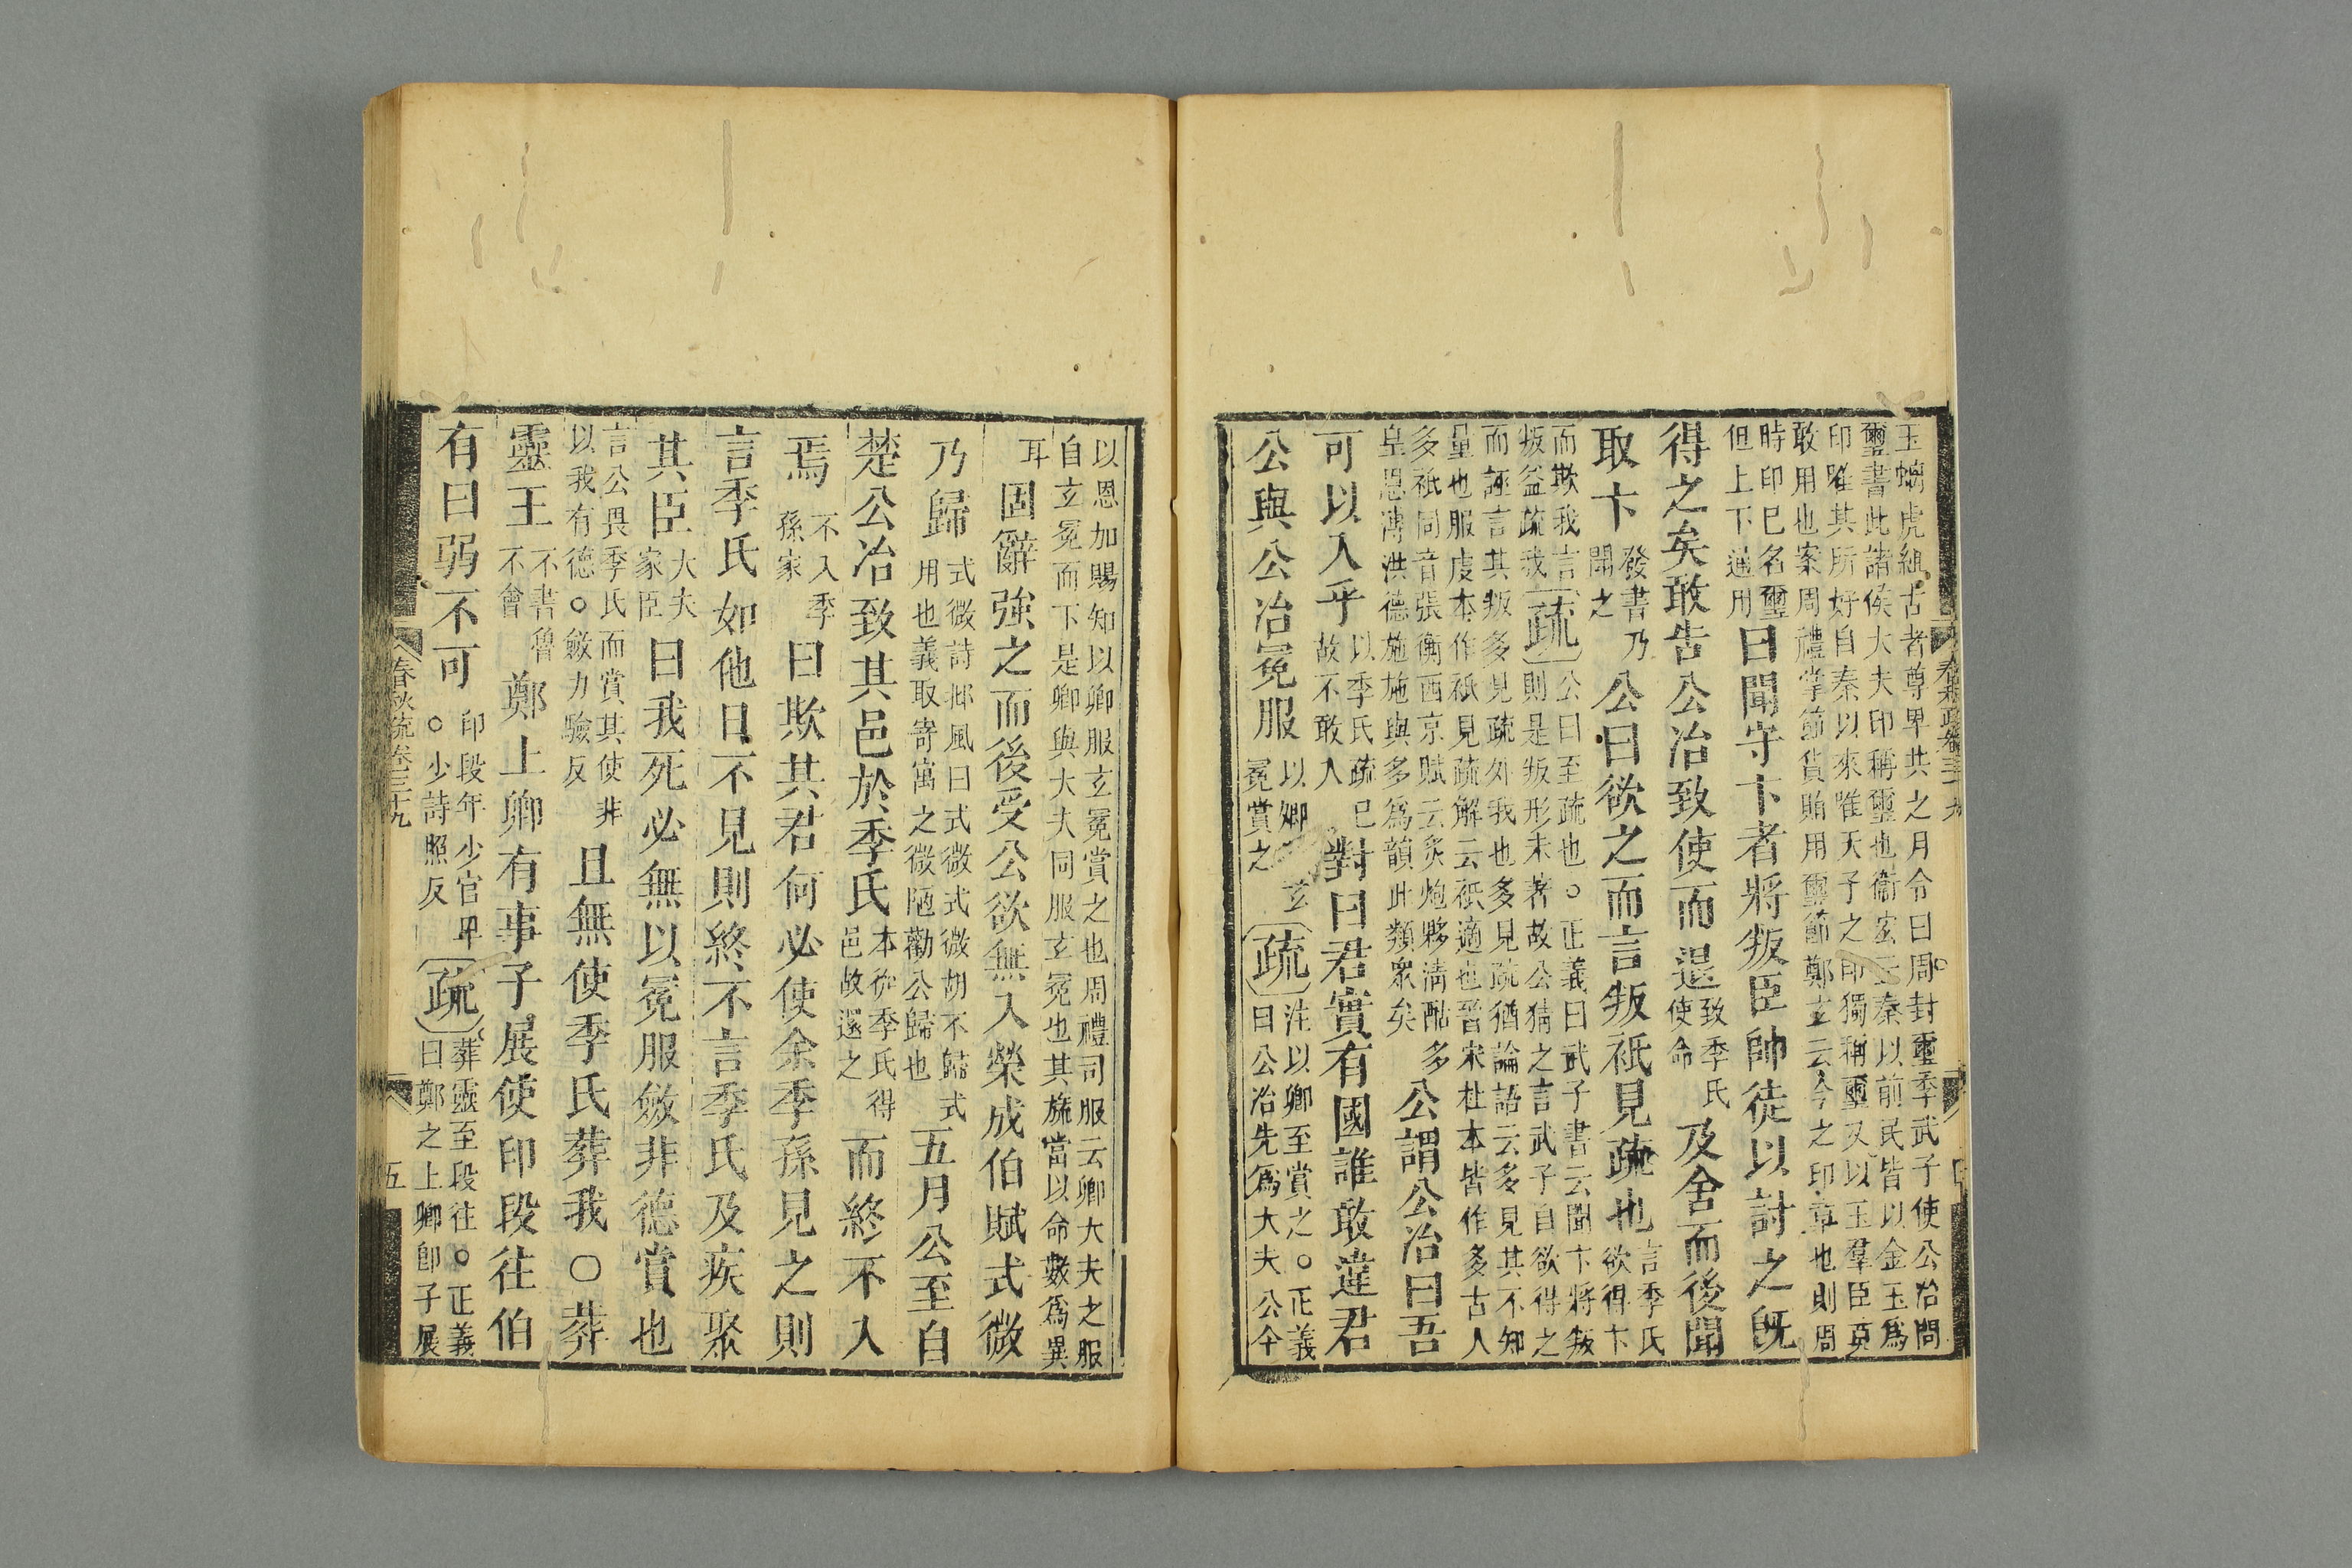 玉螭虎紐古者尊卑共之月令曰周封璽季武子使公冶問
璽書此諸侯大夫印稱璽也衞宏云秦以前民皆以金玉爲
印唯其所好自秦以來唯天子之印獨稱璽又以玉羣臣莫
敢用也案周禮掌節貨賄用璽節鄭玄云今之印章也則周
時印已名璽
但上下通用
曰聞守卞者將叛臣帥徒以討之旣
得之矣敢告公冶致使而退
致季氏
使命
及舍而後聞
取卞
發書乃
聞之
公曰欲之而言叛祇見疏也
言季氏
欲得卞
而欺我言
叛益疏我
疏
公曰至疏也○正義曰武子書云聞卞將叛
則是叛形未著故公猜之言武子自欲得之
而誣言其叛多見疏外我也多見疏猶論語云多見其不知
量也服虔本作祇見疏解云祇適也晉宋杜本皆作多古人
多祇同音張衡西京賦云炙炮夥淸酤多
皇恩溥洪德施施與多爲韻此類衆矣
公謂公冶曰吾
可以入乎
以季氏疏已
故不敢入
對曰君實有國誰敢違君
公與公冶冕服
以卿玄
冕賞之
疏
注以卿至賞之○正義
曰公冶先爲大夫公今
以恩加賜知以卿服玄冕賞之也周禮司服云卿大夫之服
自玄冕而下是卿與大夫同服玄冕也其旒當以命數爲異
耳
固辭強之而後受公欲無入榮成伯賦式微
乃歸
式微詩邶風曰式微式微胡不歸式
用也義取寄寓之微陋勸公歸也
五月公至自
楚公冶致其邑於季氏
本從季氏得
邑故還之
而終不入
焉
不入季
孫家
曰欺其君何必使余季孫見之則
言季氏如他日不見則終不言季氏及疾聚
其臣
大夫
家臣
曰我死必無以冕服斂非德賞也
言公畏季氏而賞其使非
以我有德○斂力驗反
且無使季氏葬我○葬
靈王
不書魯
不會
鄭上卿有事子展使印段往伯
有曰弱不可
印段年少官卑
○少詩照反
疏
葬靈至段往○正義
曰鄭之上卿卽子展
春秋疏卷三十九
五